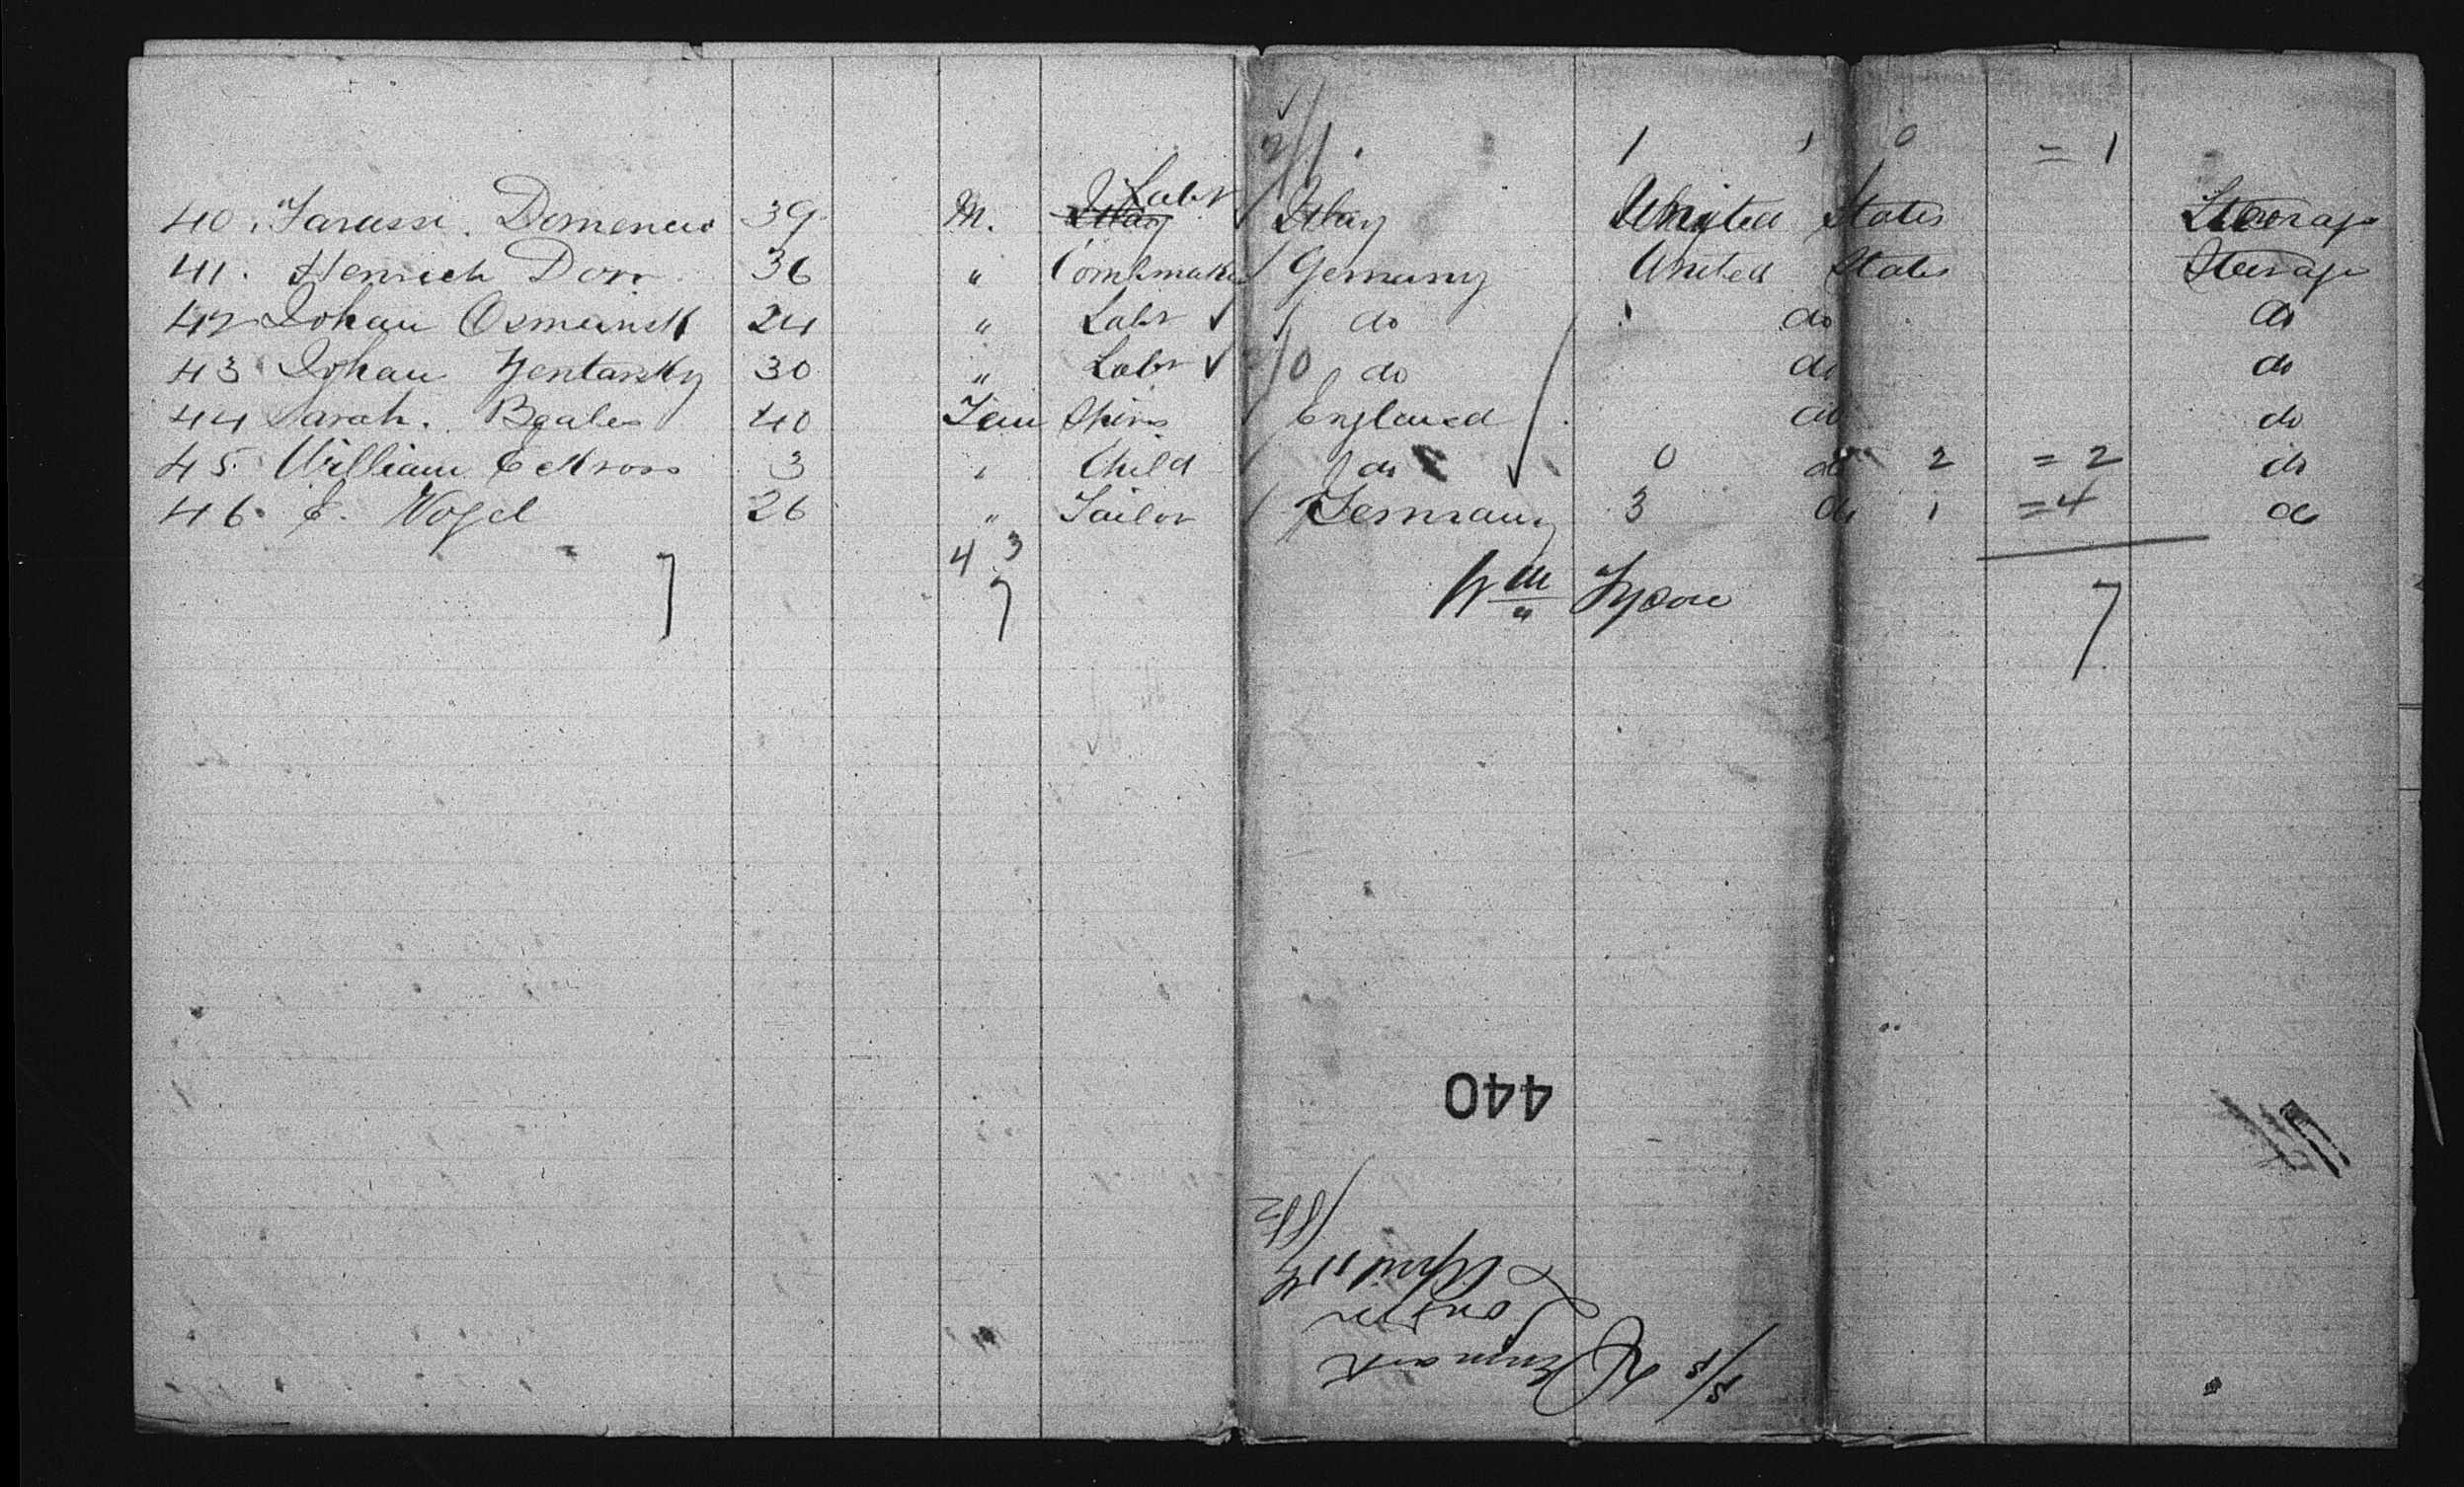 2/1 1 1 0 = 1
Labr
40. Tarussi. Domencio 39 M. Italy Italy United States Steerage
41. Henrich Dorr 36 " Combmaker Germany United States Steerage
42 Johan Osmanisk 24 " Labr ✓ do do do
43 Johan Zentarsky 30 " Labr ✓ 2/0 do do do
44 Sarah. Beales 40 Fem Spins England do do
45. William 3 " Child do 0 do 2 = 2 do
46. E. Vogel 26 " Tailor Germany 3 do 1 = 4 do
4 3
7 7 Wm Tyson 7
440
S/S Denmark
London
April 11th
1882